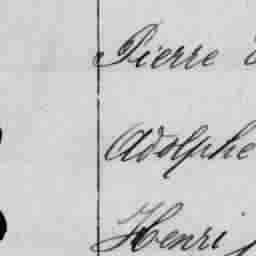 Pierre
Adolphe
Henri